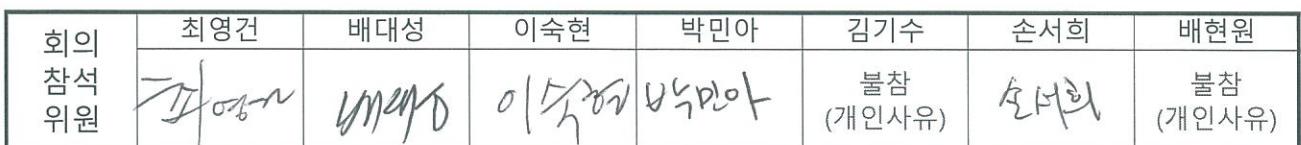 회의
참석
위원
최영건 배대성 이숙현 박민아 김기수 손서희 배현원
최영건 배대성 이숙현 박민아 불참 손서희 불참
(개인사유) (개인사유)